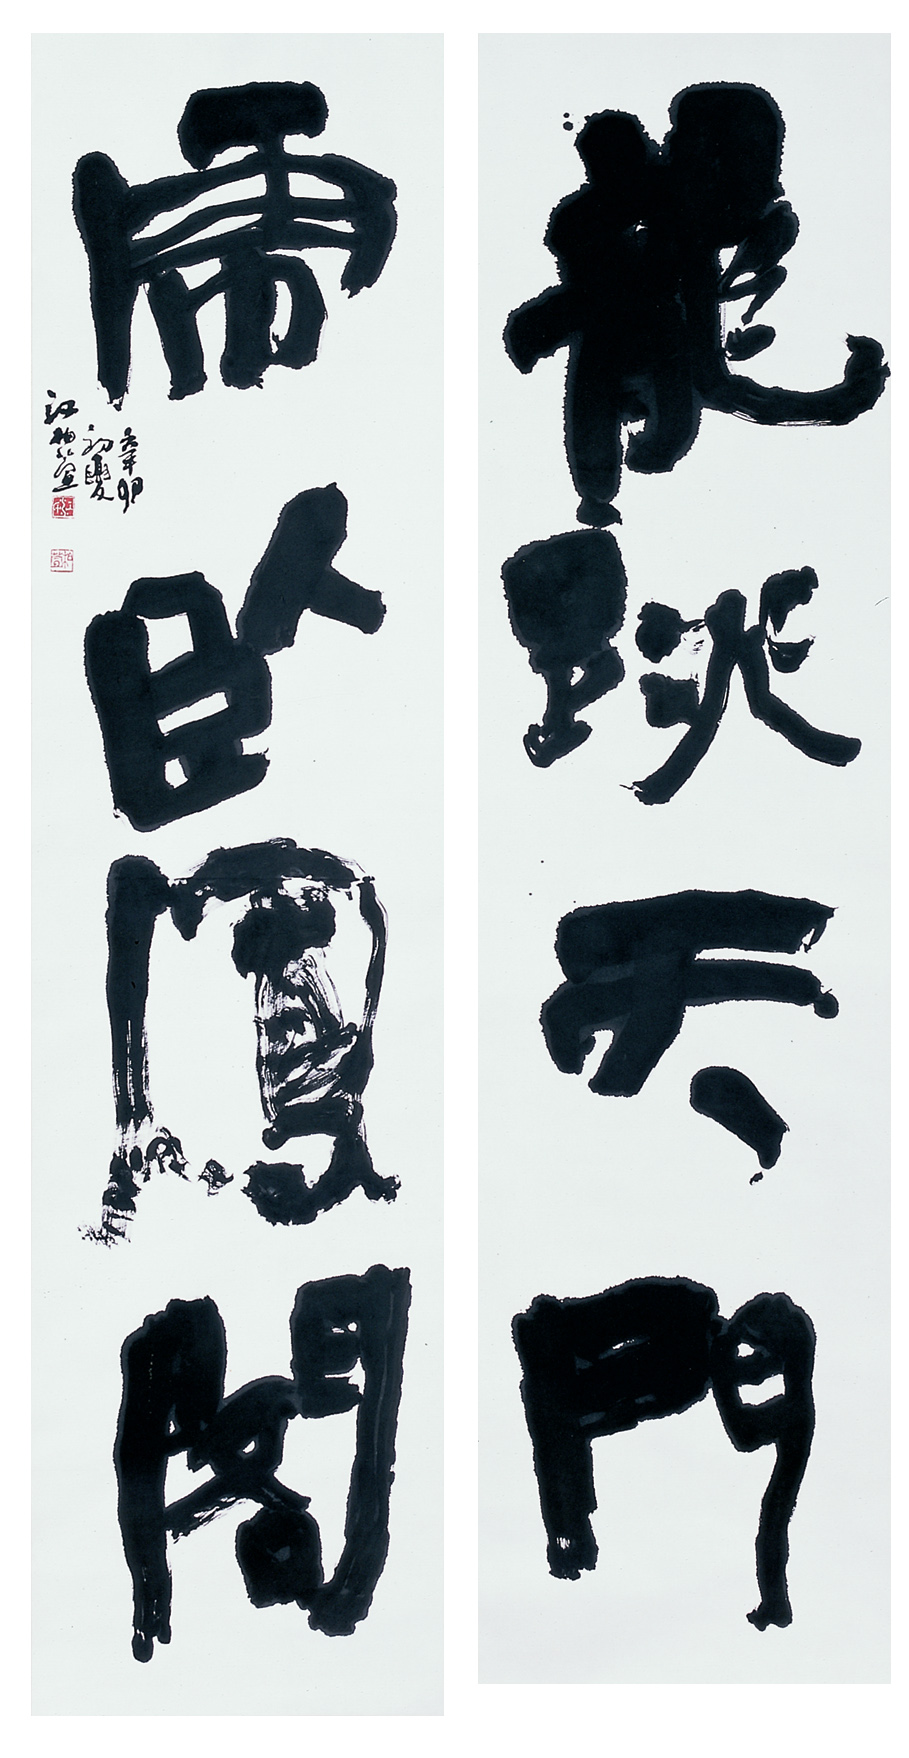 龍跳天門
虎臥鳳閣
辛卯
初夏
江柏萱